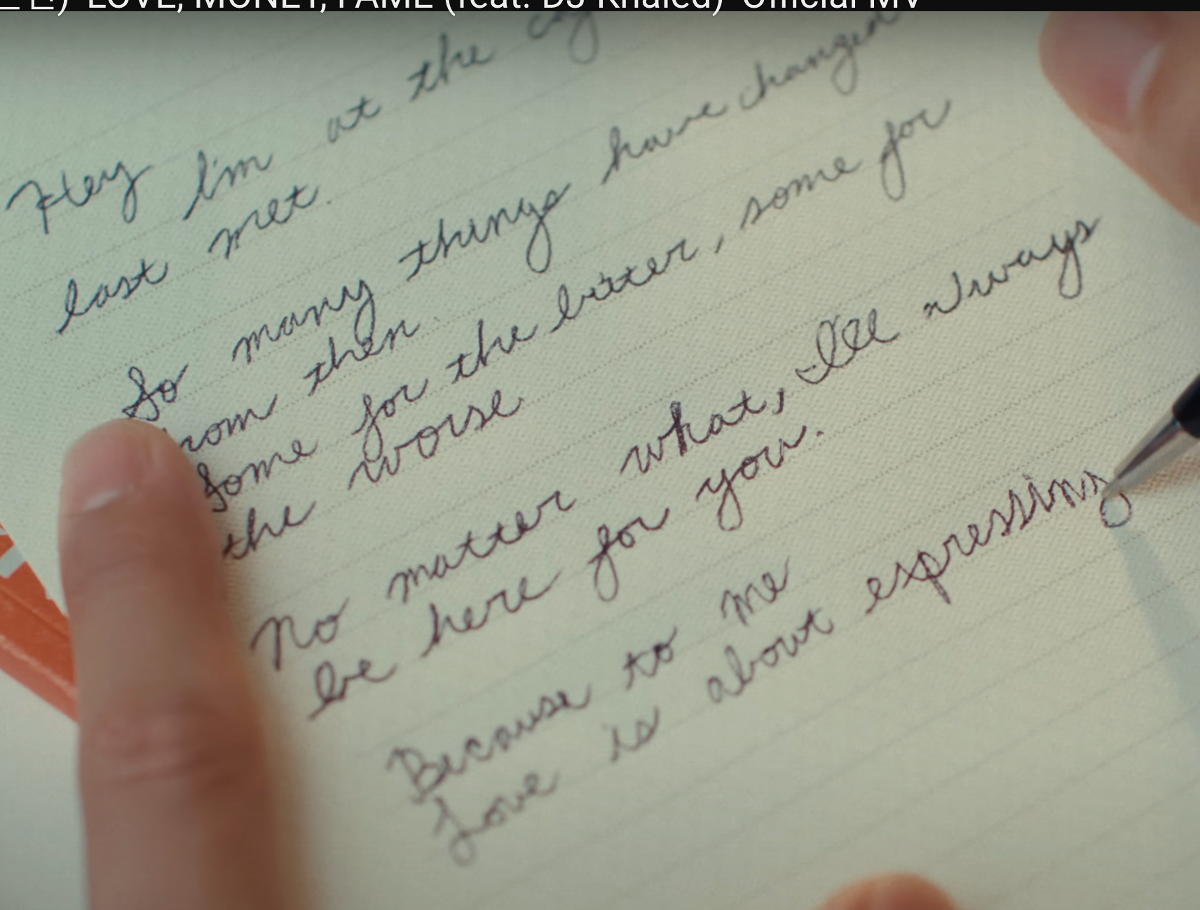 LOVE, MONEY, FAME (feat. DJ Khaled)' Official MV
Hey I'm at the
last met.
So many things have changed
from then.
Some for the better, some for
the worse
No matter what, I'll always
be here for you.
Because to me
Love is about expressing